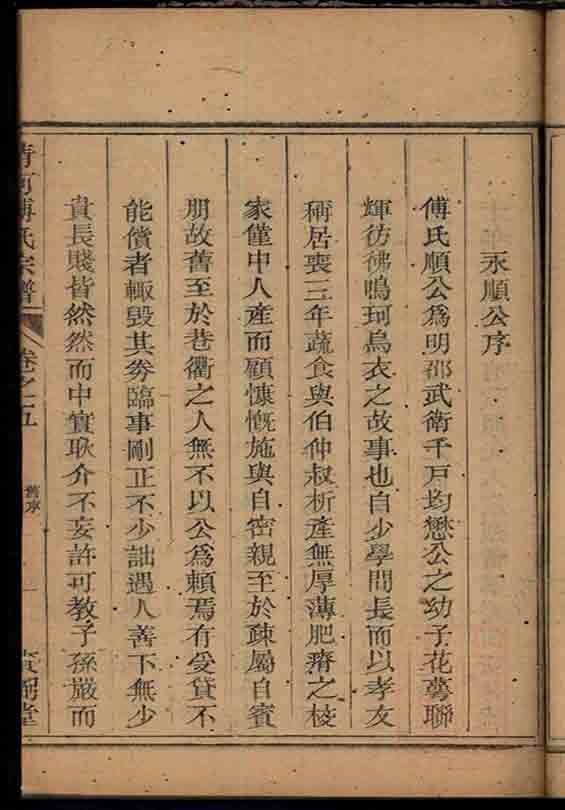 永順公序
傅氏順公爲明邵武衛千戸均懋公之幼子花萼聯
輝彷彿鳴珂烏衣之故事也自少學問長而以孝友
稱居喪三年蔬食與伯仲叔析產無厚薄肥瘠之棱
家僅中人產而顧慷慨施與自密親至於疎屬自賓
朋故舊至於巷衢之人無不以公爲賴焉有受貸不
能償者輙毀其券臨事剛正不少詘遇人善下無少
貴長賤皆然然而中實耿介不妄許可教子孫嚴而
清河傅氏宗譜
卷之五
舊序
賚弼堂